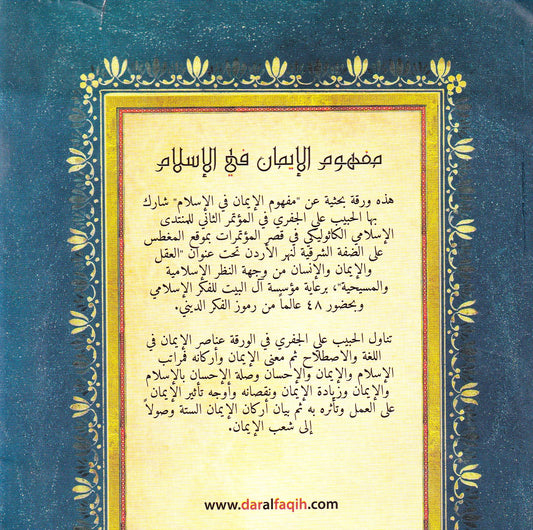 مفهوم الإيمان في الإسلام
هذه ورقة بحثية عن "مفهوم الإيمان في الإسلام" شارك
بها الحبيب علي الجفري في المؤتمر الثاني للمنتدى
الإسلامي الكاثوليكي في قصر المؤتمرات بموقع المغطس
على الضفة الشرقية لنهر الأردن تحت عنوان "العقل
والإيمان والإنسان من وجهة النظر الإسلامية
والمسيحية"، برعاية مؤسسة آل البيت للفكر الإسلامي
وبحضور ٤٨ عالماً من رموز الفكر الديني.
تناول الحبيب علي الجفري في الورقة عناصر الإيمان في
اللغة والاصطلاح ثم معنى الإيمان وأركانه فمراتب
الإسلام والإيمان والإحسان وصلة الإحسان بالإسلام
والإيمان وزيادة الإيمان ونقصانه وأوجه تأثير الإيمان
على العمل وتأثره به ثم بيان أركان الإيمان الستة وصولاً
إلى شعب الإيمان.
www.daralfaqih.com